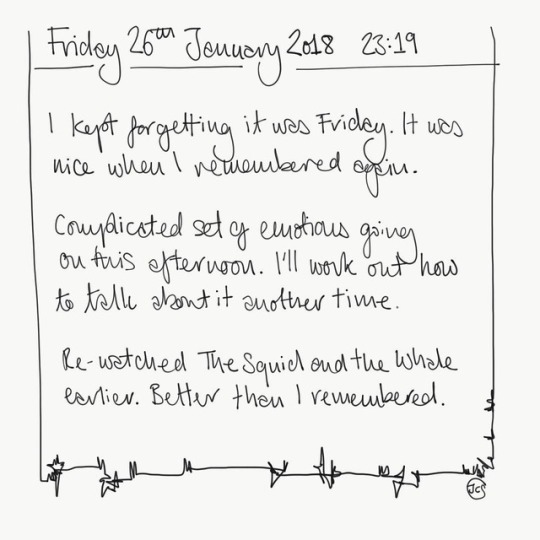 Friday 26th January 2018 23:19
I kept forgetting it was Friday. It was
nice when I remembered again.
Complicated set of emotions going
on this afternoon. I'll work out how
to talk about it another time.
Re-watched The Squid and the Whale
earlier. Better than I remembered.
JCS